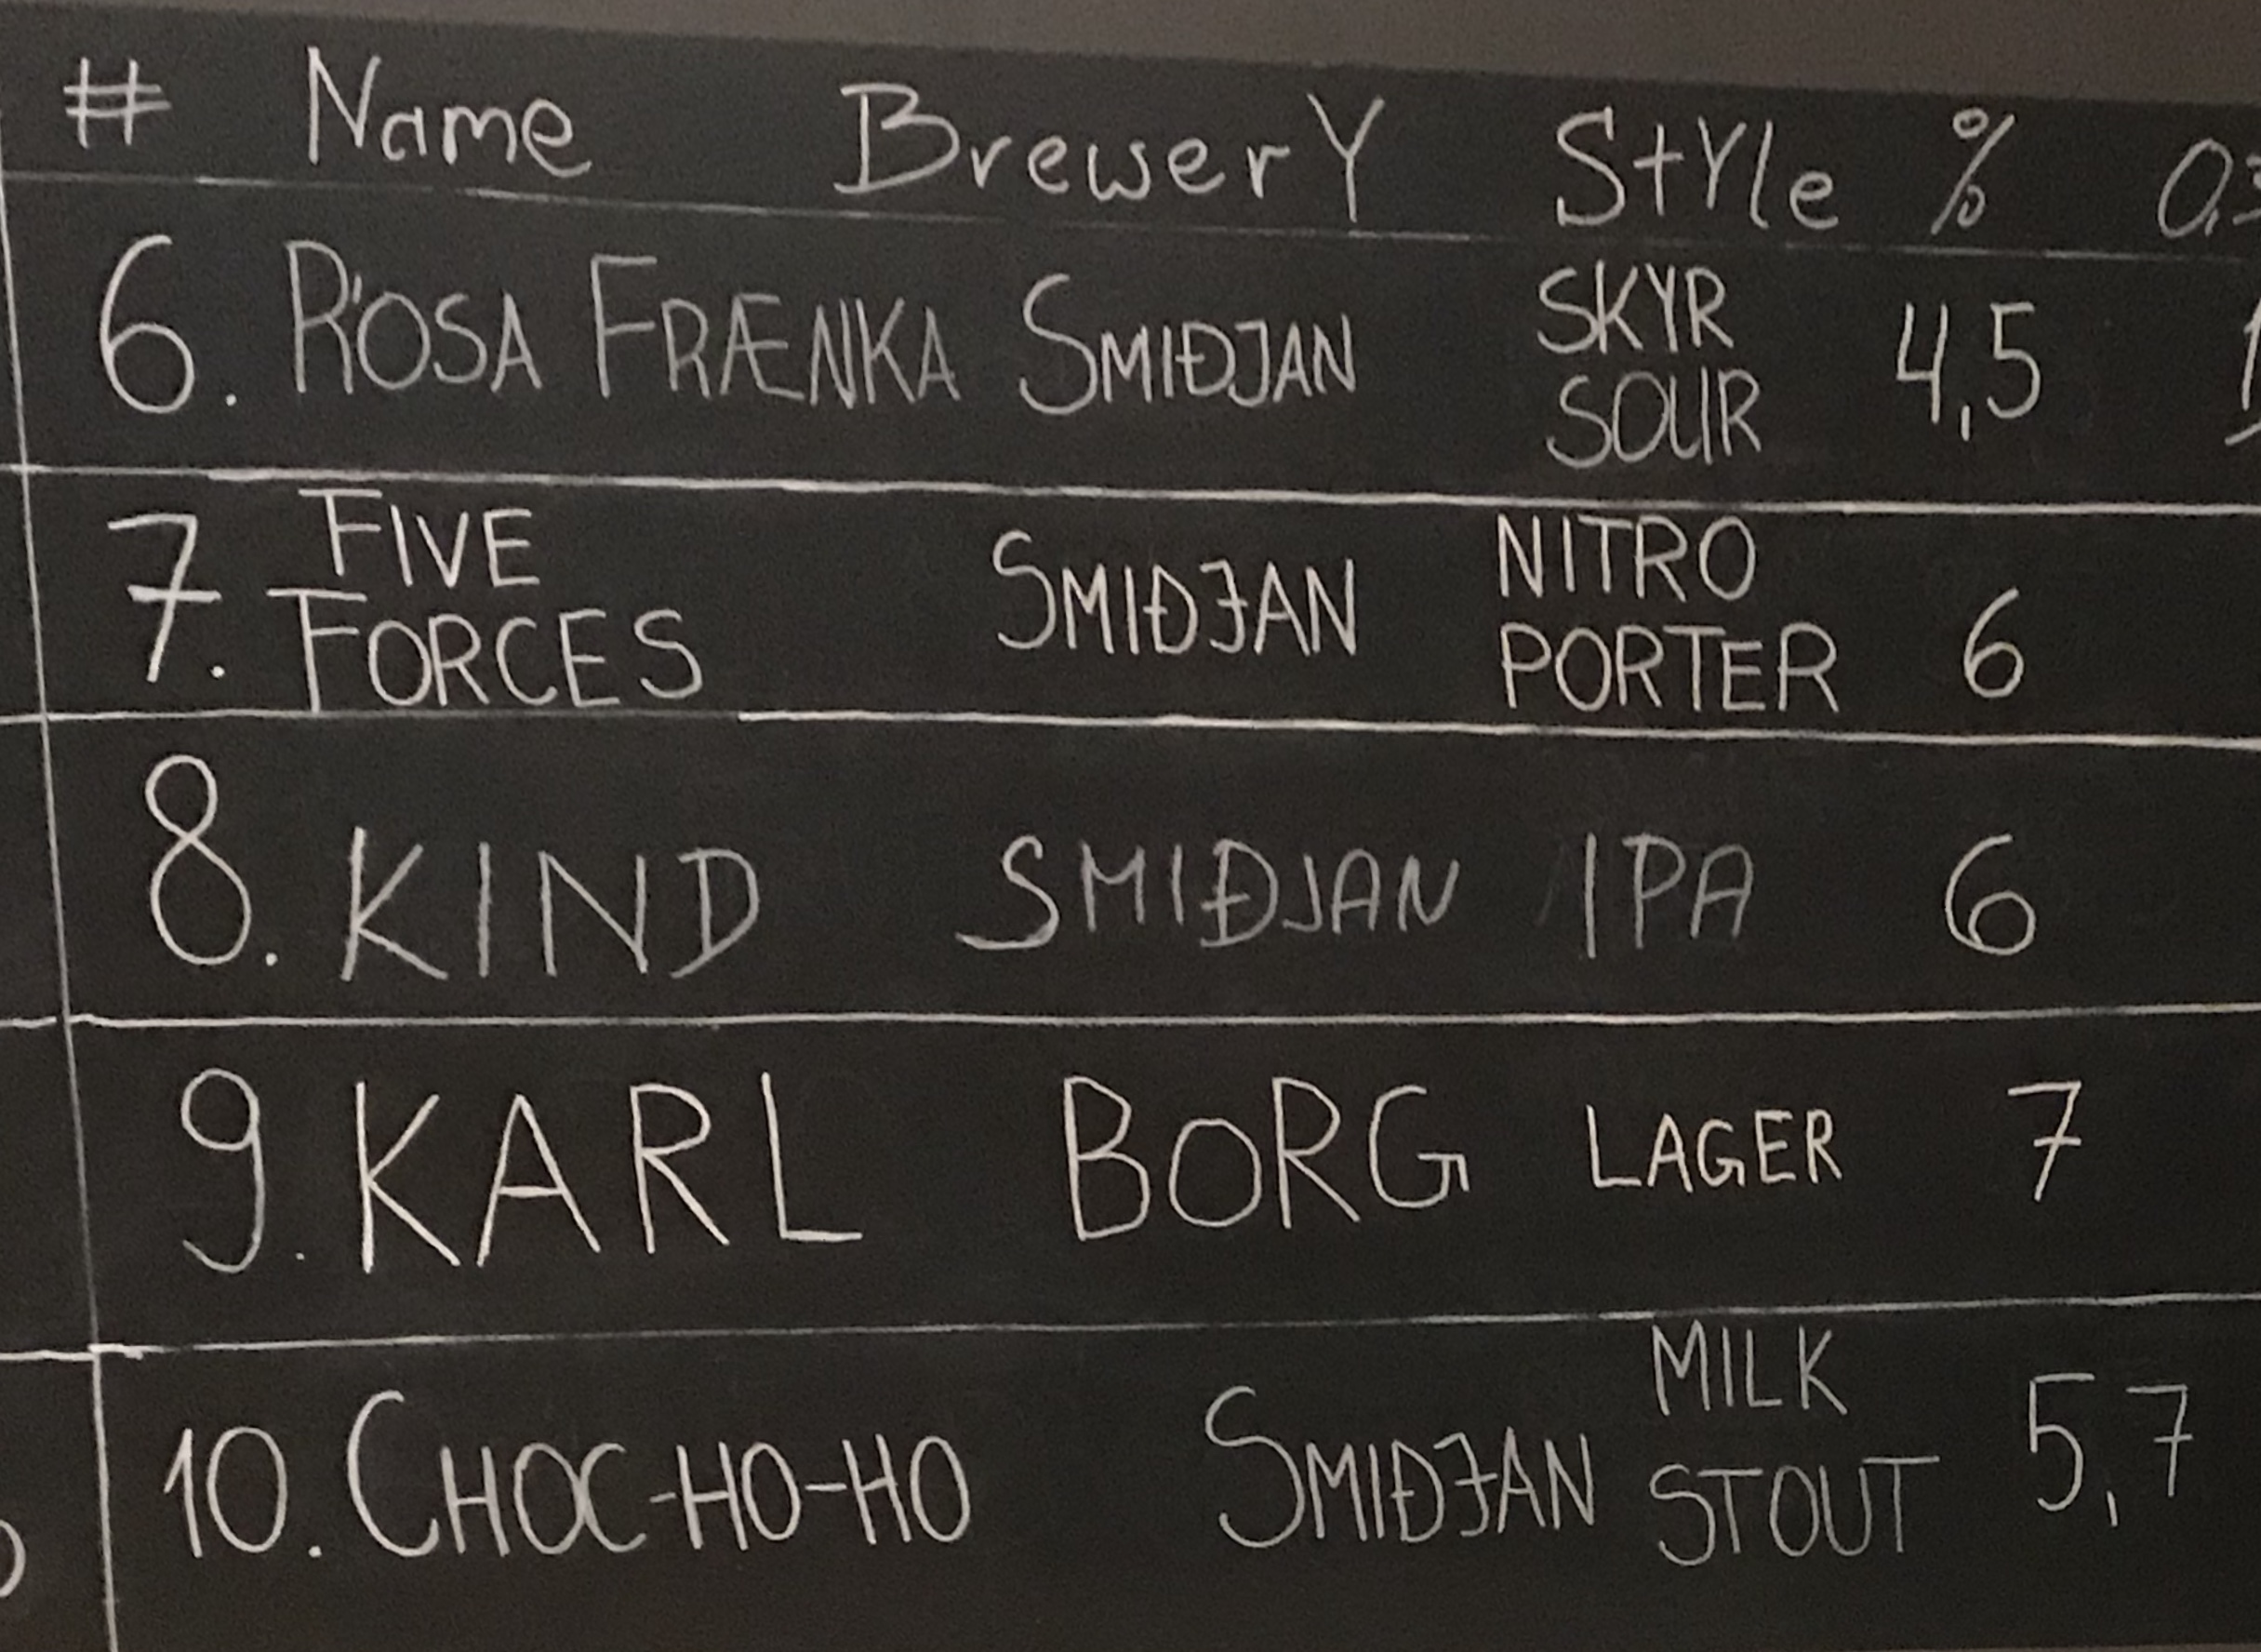 # Name Brewery Style %
6. RÓSA FRÆNKA SMIÐJAN SKYR SOUR 4,5
7. FIVE FORCES SMIÐJAN NITRO PORTER 6
8. KIND SMIÐJAN IPA 6
9. KARL BORG LAGER 7
10. CHOC-HO-HO SMIÐJAN MILK STOUT 5,7